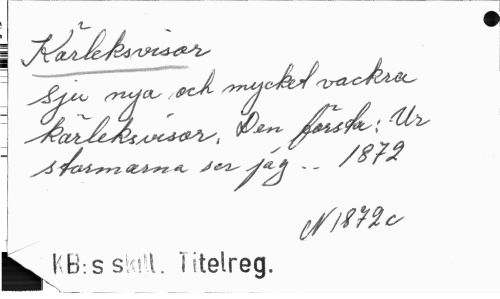 Kärleksvisor
sju nya och mycket vackra
kärleksvisor. Den första: Ur
stormarna ser jag .. 1872
N 1872c
KB:s skill. Titelreg.